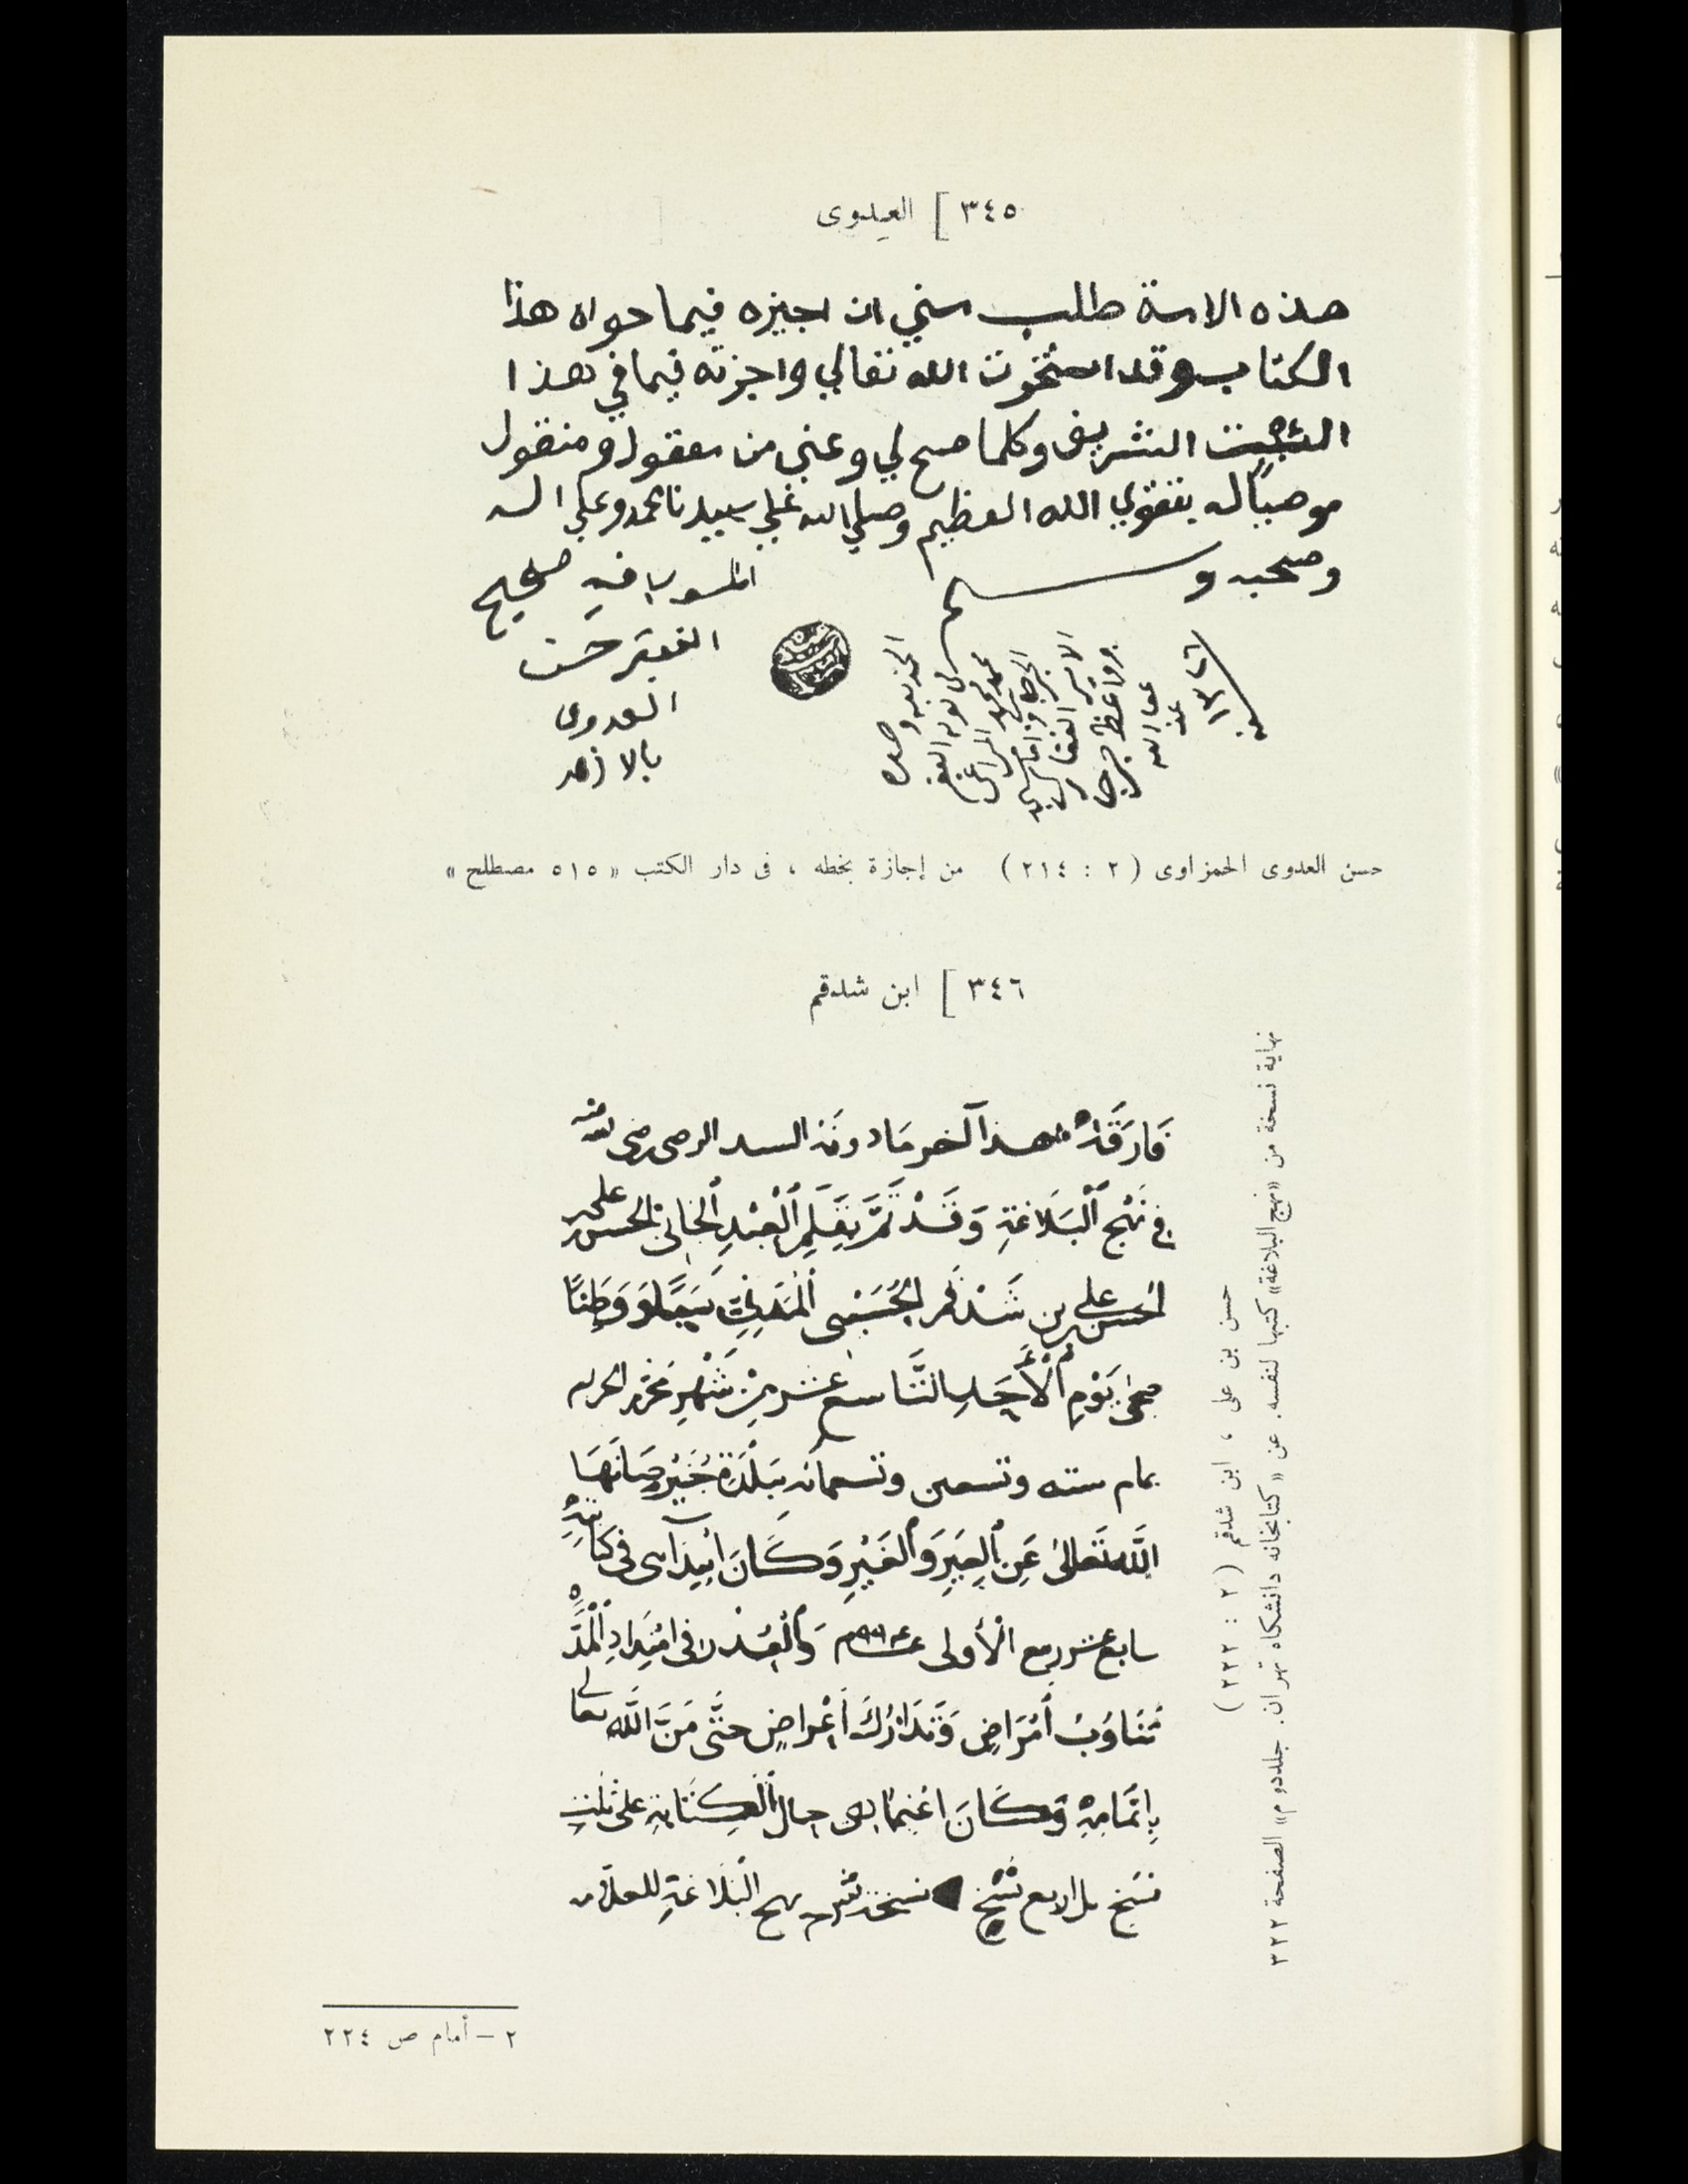 ٣٤٥ [ العدوى
هذه الامة طلب مني ان اجيزه فيما حواه هذا
الكتاب وقد استخرت الله تعالي واجزته فيما في هذا
الثبت الشريف وكلما صح لي وعني من معقول ومنقول
موصيا له بتقوي الله العظيم وصلي الله علي سيدنا محمد وعلي اله
وصحبه وسلم
صحيح
الفقير حسن
العدوى
بالازهر
الحمد لله وحده
عفا الله
عنه
سنة ١٣٢٦
حسن العدوى الحمزاوى ( ٢ : ٢١٤ ) من إجازة بخطه ، فى دار الكتب « ٥١٥ مصطلح »
٣٤٦ [ ابن شدقم
هذا آخر ما دونه السيد الرضى رضى الله عنه
فِي نَهْجِ ٱلْبَلَاغَةِ وَقَدْ تَمَّ بِقَلَمِ ٱلْعَبْدِ ٱلْجَانِي الحسن بن على
الحسن بن علي بن شَدْقَم الحُسَيْنِى ٱلْمَدَنِيّ وَوَطَنًا
ضحى يَوْمِ ٱلْأَحَدِ التَّاسع عشر مِنْ شَهْرِ محرم الحرام
عام سته وتسعين وتسعمائه بِبَلْدَةِ صَانَهَا
اللَّه تَعَالىٰ عَنِ ٱلْغِيَرِ وَكَانَ ابْتِدَائى فى كِتَابَتِهِ
سابع عشر ربيع الأولى وَٱلْعُذْر فى امْتِدَادِ ٱلْمُدَّه
تَنَاوُبُ أَمْرَاضٍ وَتَدَارُكَ أَعْراضٍ حَتَّى مَنَّ اللَّه تعالى
بِإِتْمَامِهِ وَكَانَ اعْتِمَادى حال ٱلْكِتَابَةِ على ثلث
نسخ بل اربع نُسَخٍ نسخة شرح نهج البَلَاغَةِ للعلامه
حسن بن على ، ابن شدقم ( ٢ : ٢٢٢ )
نهاية نسخة من «نهج البلاغة» كتبها لنفسه. عن «كتابخانه دانشكاه تهران. جلد دوم» الصفحة ٣٢٢
٢ – أمام ص ٢٢٤